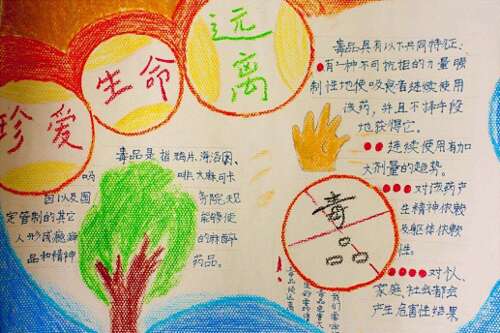 珍爱
生命
远离
毒品是指鸦片、海洛因、
吗 啡、大麻、可卡
因以及国 务院规
定管制的其它 能够使
人形成瘾癖 的麻醉
品和精神 药品。
毒品具有以下共同特征、
●有一种不可抗拒的力量强
制性地使吸食者连续使用
该药,并且不择手段
地获得它。
●●连续使用有加
大剂量的趋势。
●●●对该药产
生精神依赖
及躯体依赖
性。
●●●●对个人、
家庭、社会都会
产生危害性结果
毒品